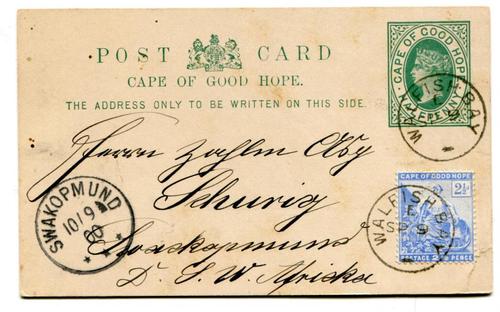 POST CARD
CAPE OF GOOD HOPE.
THE ADDRESS ONLY TO BE WRITTEN ON THIS SIDE.
CAPE OF GOOD HOPE
HALFPENNY
WALFISH BAY
E
9
Herrn Zahlm Asp
Schurig
Swakopmund
D. S. W. Afrika
SWAKOPMUND
10/9
00
CAPE OF GOOD HOPE
2½
POSTAGE 2½ PENCE
WALFISH BAY
E
SP 9